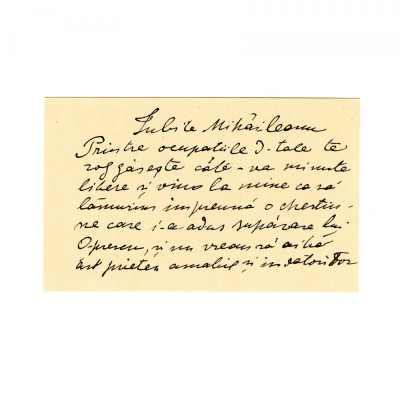 Iubite Mihăileanu
Printre ocupatiile D-tale te
rog găsește câte-va minute
libere și vino la mine ca să
lămurim împreună o chestiu-
ne care i-a adus supărare lui
Oprescu, și nu vreau să aibă
ast prieten amabil și indatoritor